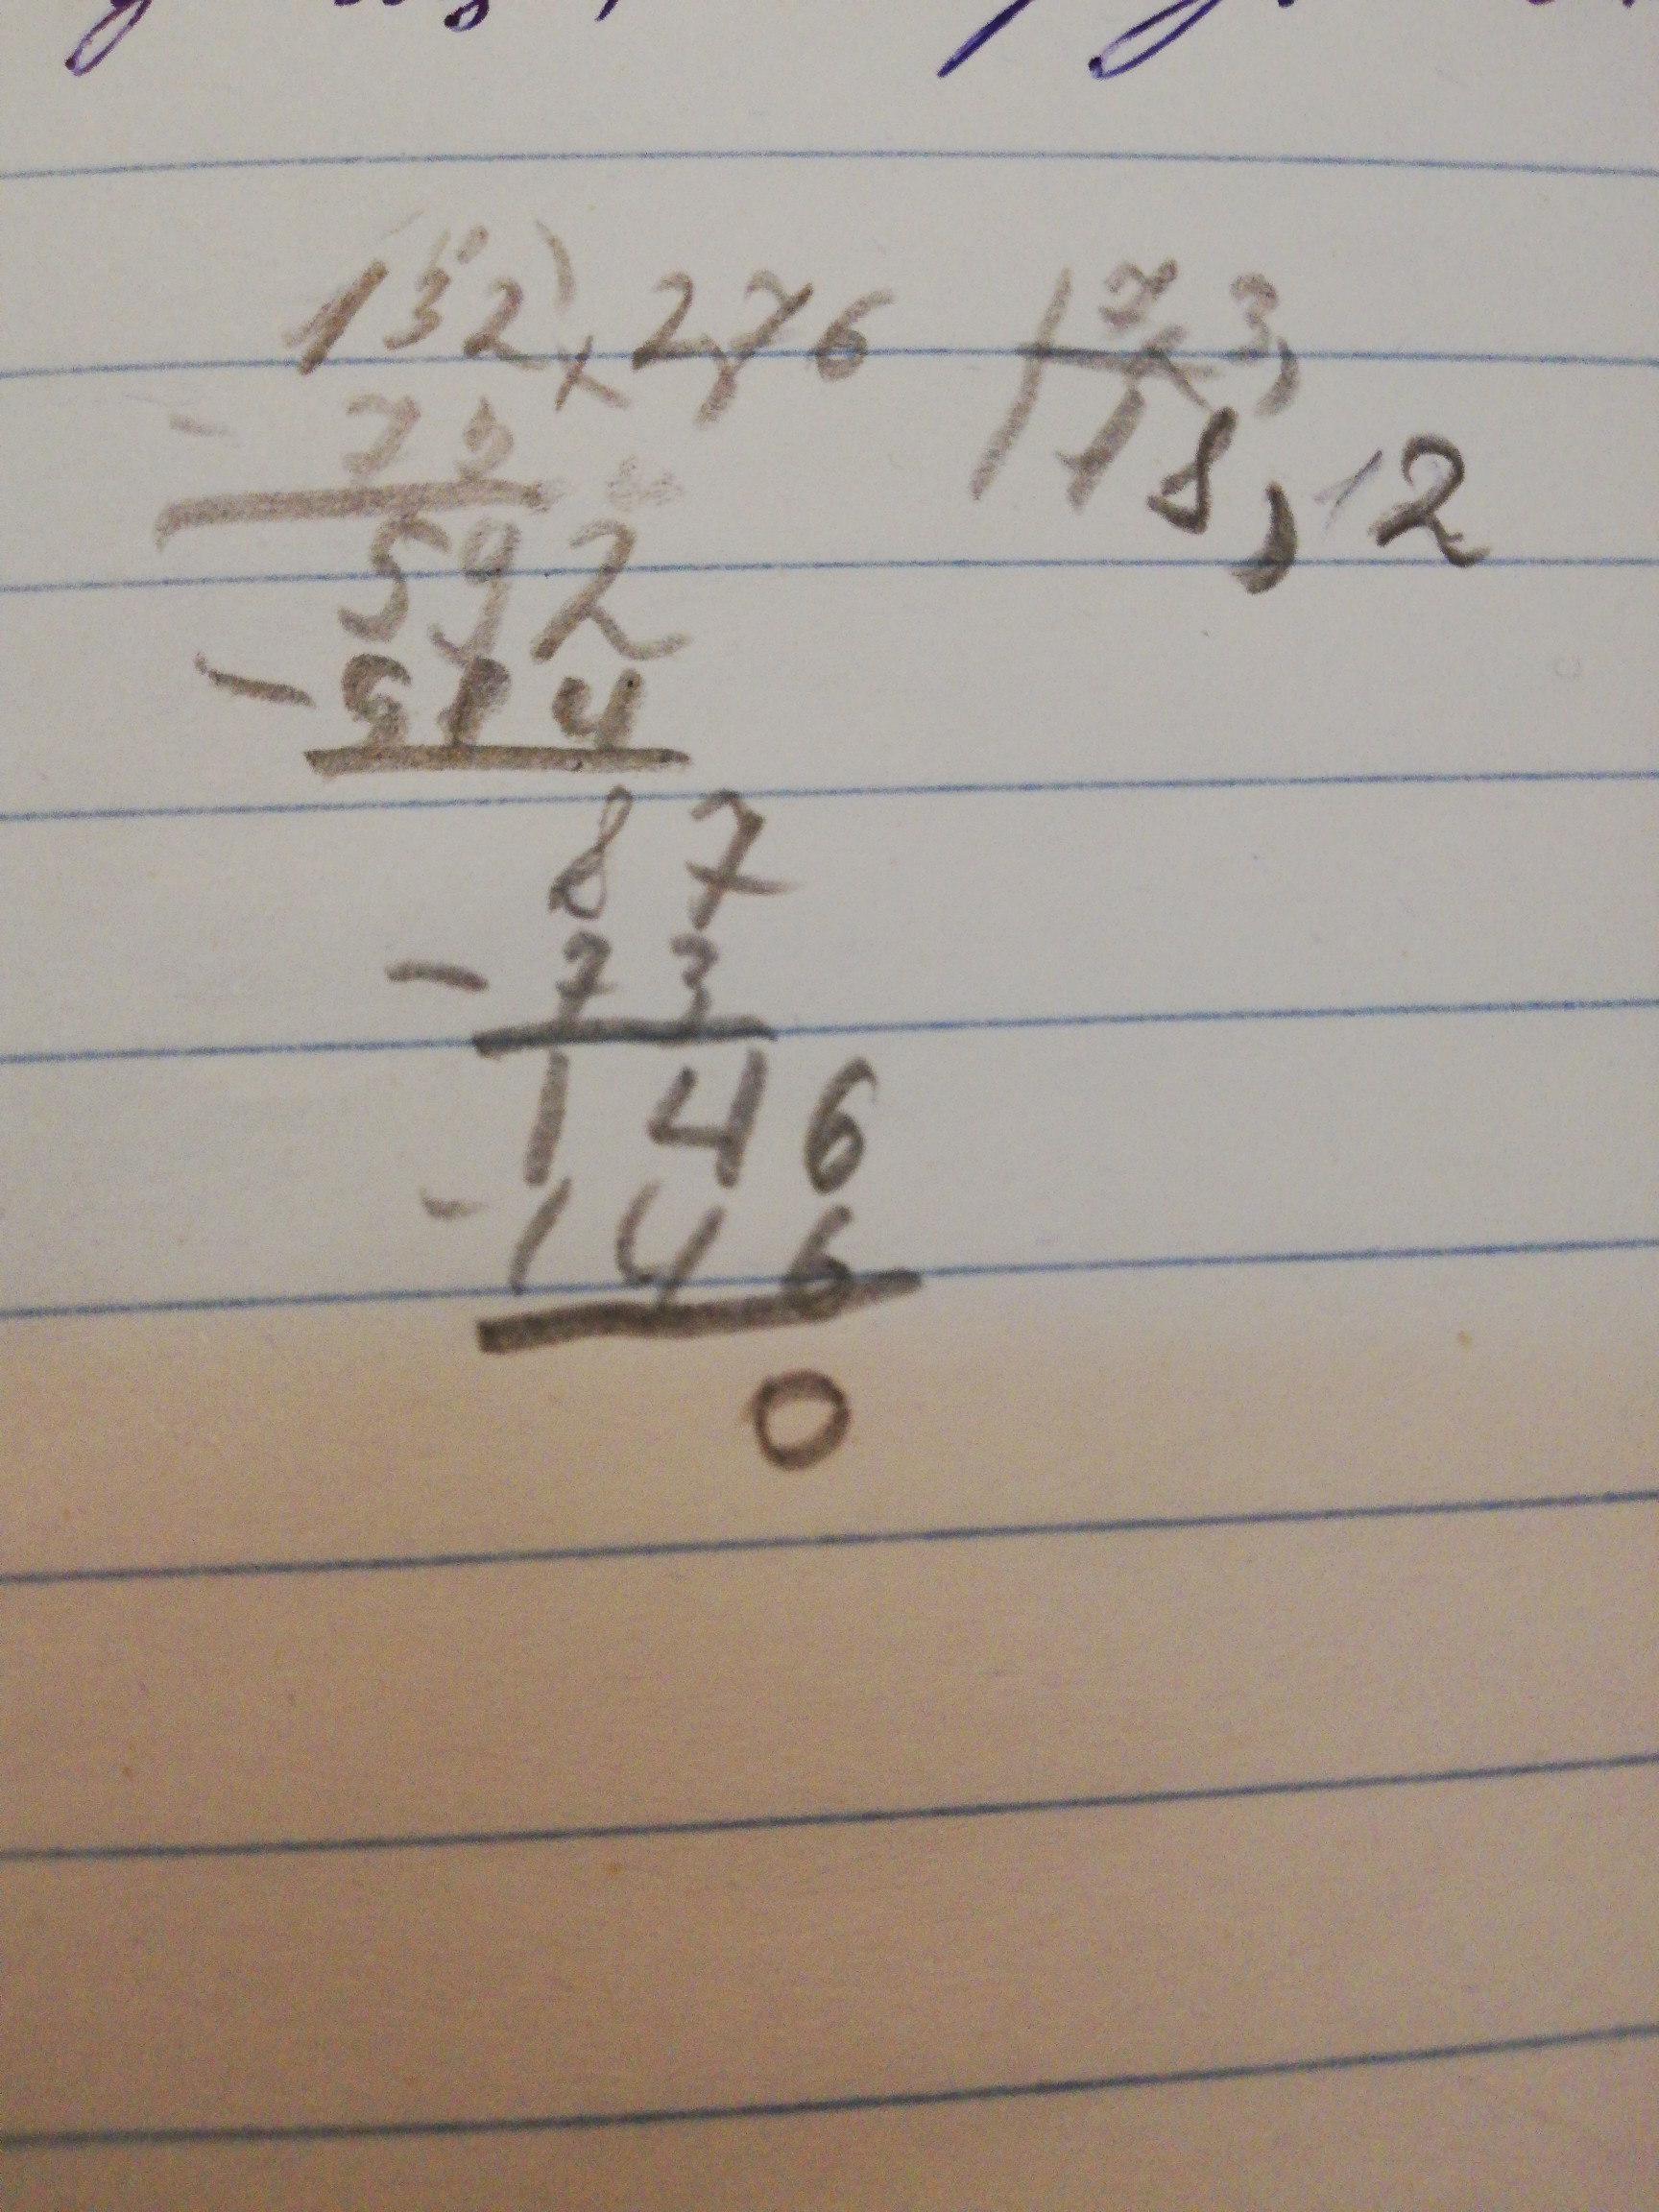 132,2,76 | 7,3,
- 73 | 18,12
592
- 514
87
- 73
146
- 146
0